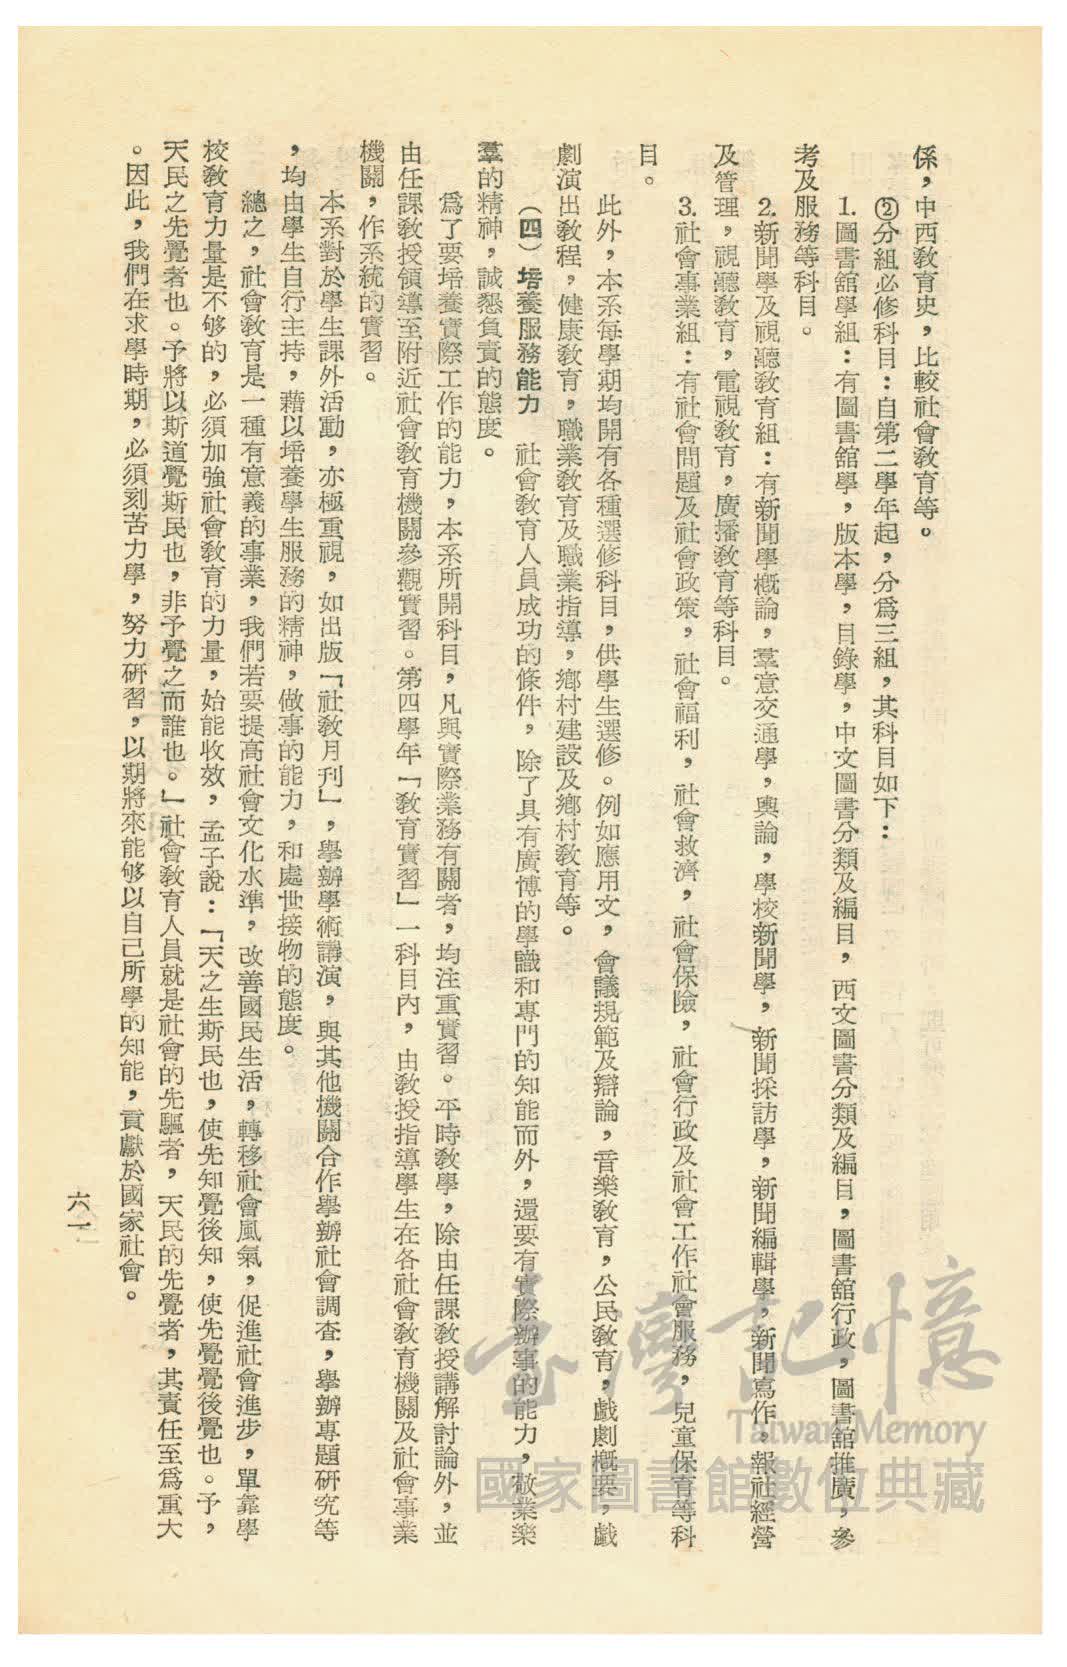 係，中西敎育史，比較社會敎育等。
②分組必修科目：自第二學年起，分爲三組，其科目如下：
1.圖書舘學組：有圖書舘學，版本學，目錄學，中文圖書分類及編目，西文圖書分類及編目，圖書舘行政，圖書舘推廣，參
考及服務等科目。
2.新聞學及視聽敎育組：有新聞學槪論，羣意交通學，輿論，學校新聞學，新聞採訪學，新聞編輯學，新聞寫作，報社經營
及管理，視聽敎育，電視敎育，廣播敎育等科目。
3.社會事業組：有社會問題及社會政策，社會福利，社會救濟，社會保險，社會行政及社會工作社會服務，兒童保育等科
目。
此外，本系每學期均開有各種選修科目，供學生選修。例如應用文，會議規範及辯論，音樂敎育，公民敎育，戲劇槪要，戲
劇演出敎程，健康敎育，職業敎育及職業指導，鄉村建設及鄉村敎育等。
（四）培養服務能力　社會敎育人員成功的條件，除了具有廣博的學識和專門的知能而外，還要有實際辦事的能力，敬業樂
羣的精神，誠懇負責的態度。
爲了要培養實際工作的能力，本系所開科目，凡與實際業務有關者，均注重實習。平時敎學，除由任課敎授講解討論外，並
由任課敎授領導至附近社會敎育機關參觀實習。第四學年「敎育實習」一科目內，由敎授指導學生在各社會敎育機關及社會事業
機關，作系統的實習。
本系對於學生課外活動，亦極重視，如出版「社敎月刋」，學辦學術講演，與其他機關合作學辦社會調查，學辦專題研究等
，均由學生自行主持，藉以培養學生服務的精神，做事的能力，和處世接物的態度。
總之，社會敎育是一種有意義的事業，我們若要提高社會文化水準，改善國民生活，轉移社會風氣，促進社會進步，單靠學
校敎育力量是不够的，必須加強社會敎育的力量，始能收效，孟子說：「天之生斯民也，使先知覺後知，使先覺覺後覺也。予，
天民之先覺者也。予將以斯道覺斯民也，非予覺之而誰也。」社會敎育人員就是社會的先驅者，天民的先覺者，其責任至爲重大
。因此，我們在求學時期，必須刻苦力學，努力研習，以期將來能够以自己所學的知能，貢獻於國家社會。
六一
臺灣記憶
Taiwan Memory
國家圖書館數位典藏